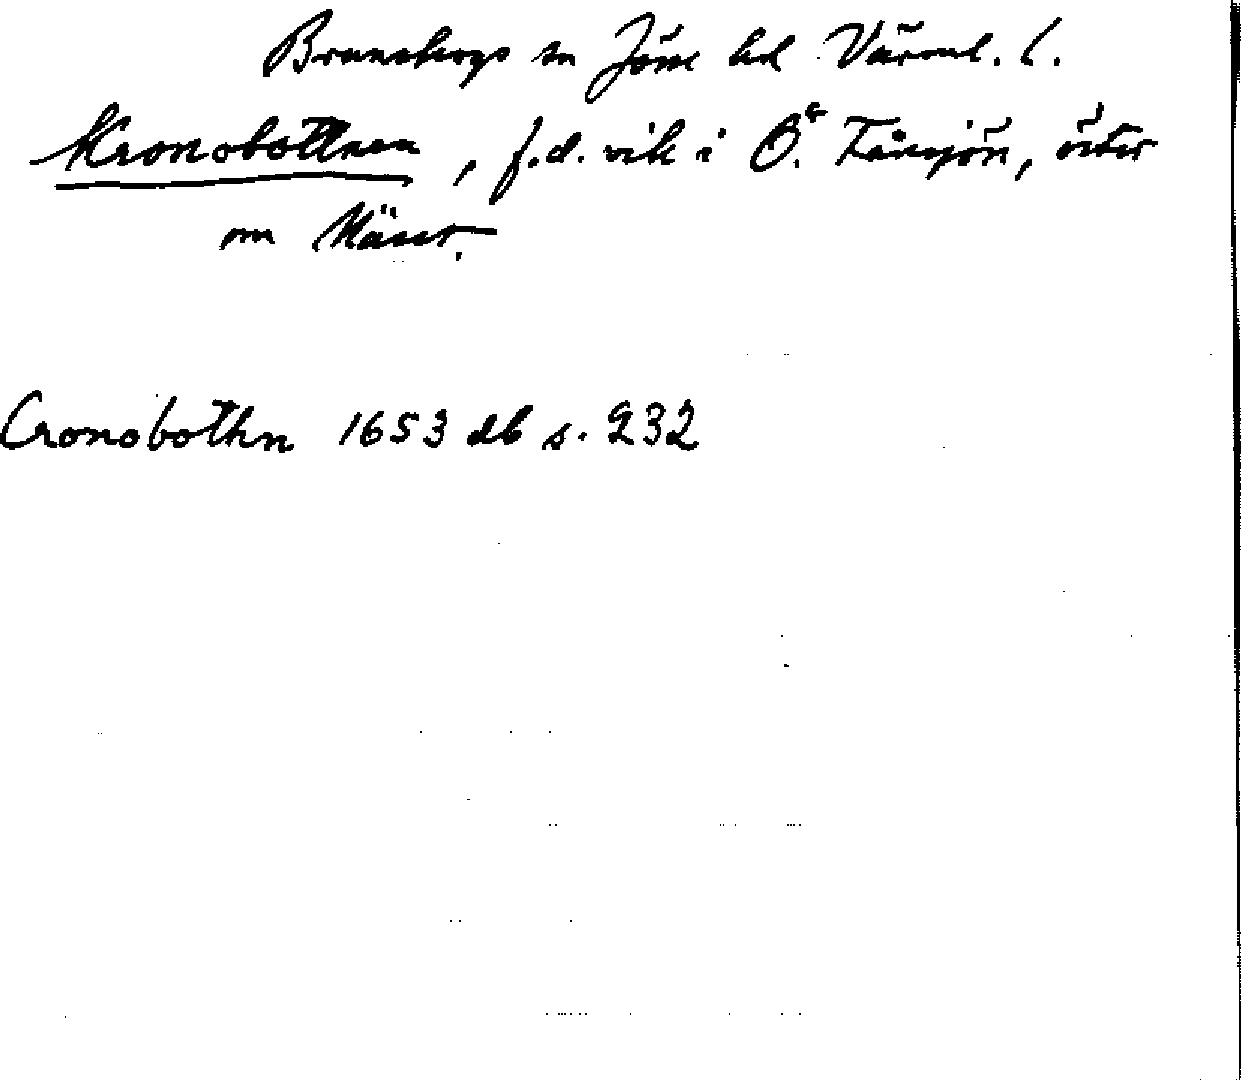 Brunskogs sn Jöss hd Värml. l.
Kronobottnen, f.d. vik i Ö. Tårsjön, öster
om
Cronobothn 1653 db s. 232